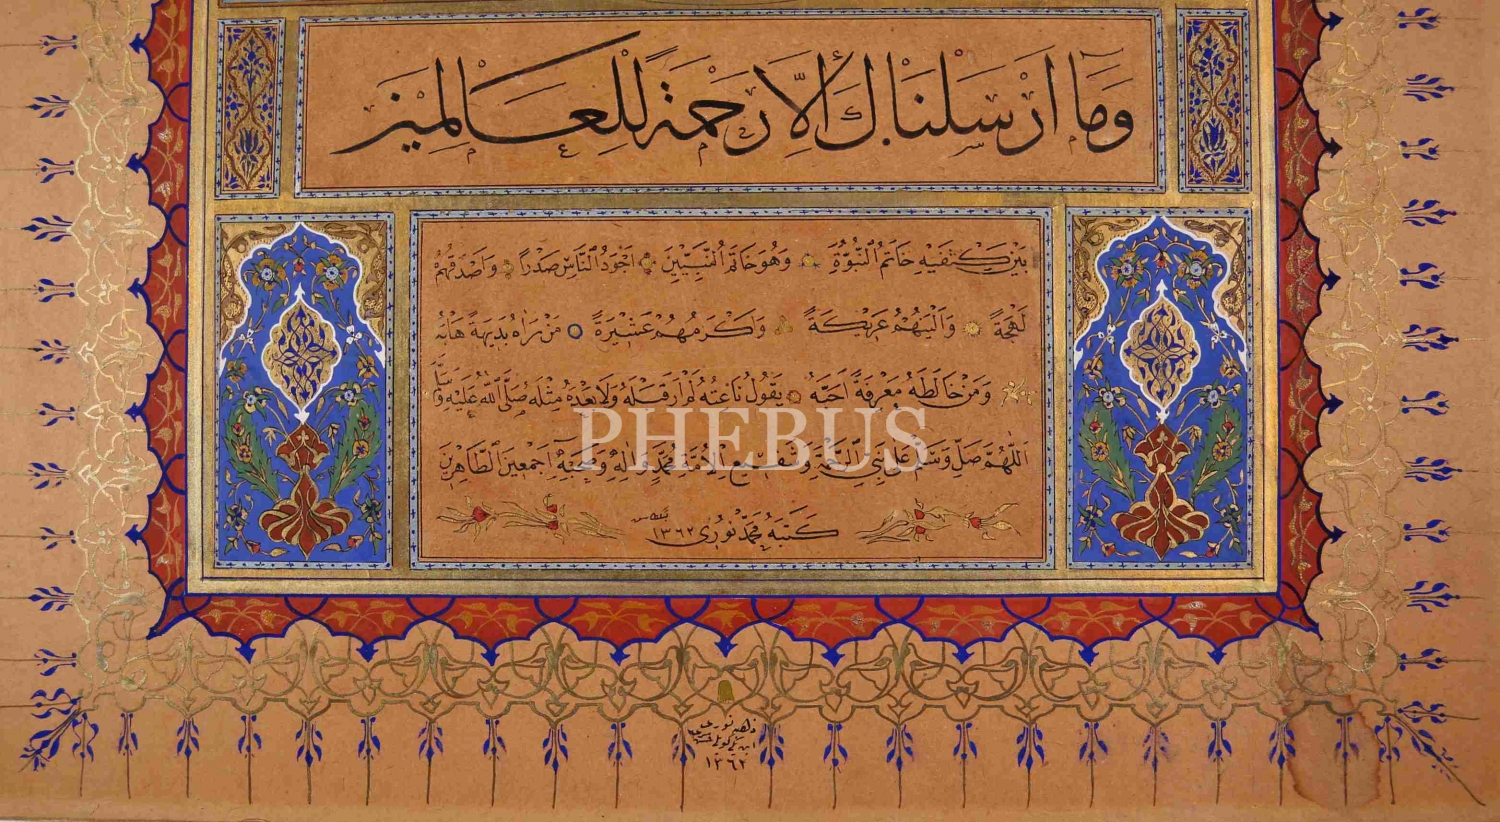 وَمَا اَرْسَلْنَاكَ اِلَّا رَحْمَةً لِلْعَالَمِينَ
بَيْنَ كَتِفَيْهِ خَاتَمُ النُّبُوَّةِ وَهُوَ خَاتَمُ النَّبِيِّينَ اَجْوَدُ النَّاسِ صَدْرًا وَاَصْدَقُهُمْ
لَهْجَةً وَاَلْيَنُهُمْ عَرِيكَةً وَاَكْرَمُهُمْ عَشِيرَةً مَنْ رَاٰهُ بَدِيهَةً هَابَهُ
وَمَنْ خَالَطَهُ مَعْرِفَةً اَحَبَّهُ يَقُولُ نَاعِتُهُ لَمْ اَرَ قَبْلَهُ وَلَا بَعْدَهُ مِثْلَهُ صَلَّى اللّٰهُ عَلَيْهِ وَسَلَّمَ
اَللّٰهُمَّ صَلِّ وَسَلِّمْ عَلٰى نَبِيِّ الرَّحْمَةِ وَشَفِيعِ الْاُمَّةِ مُحَمَّدٍ وَاٰلِهِ وَصَحْبِهِ اَجْمَعِينَ الطَّاهِرِينَ
PHEBUS
كَتَبَهُ مُحَمَّدْ نُورِى ١٣٦٢
١٣٦٢